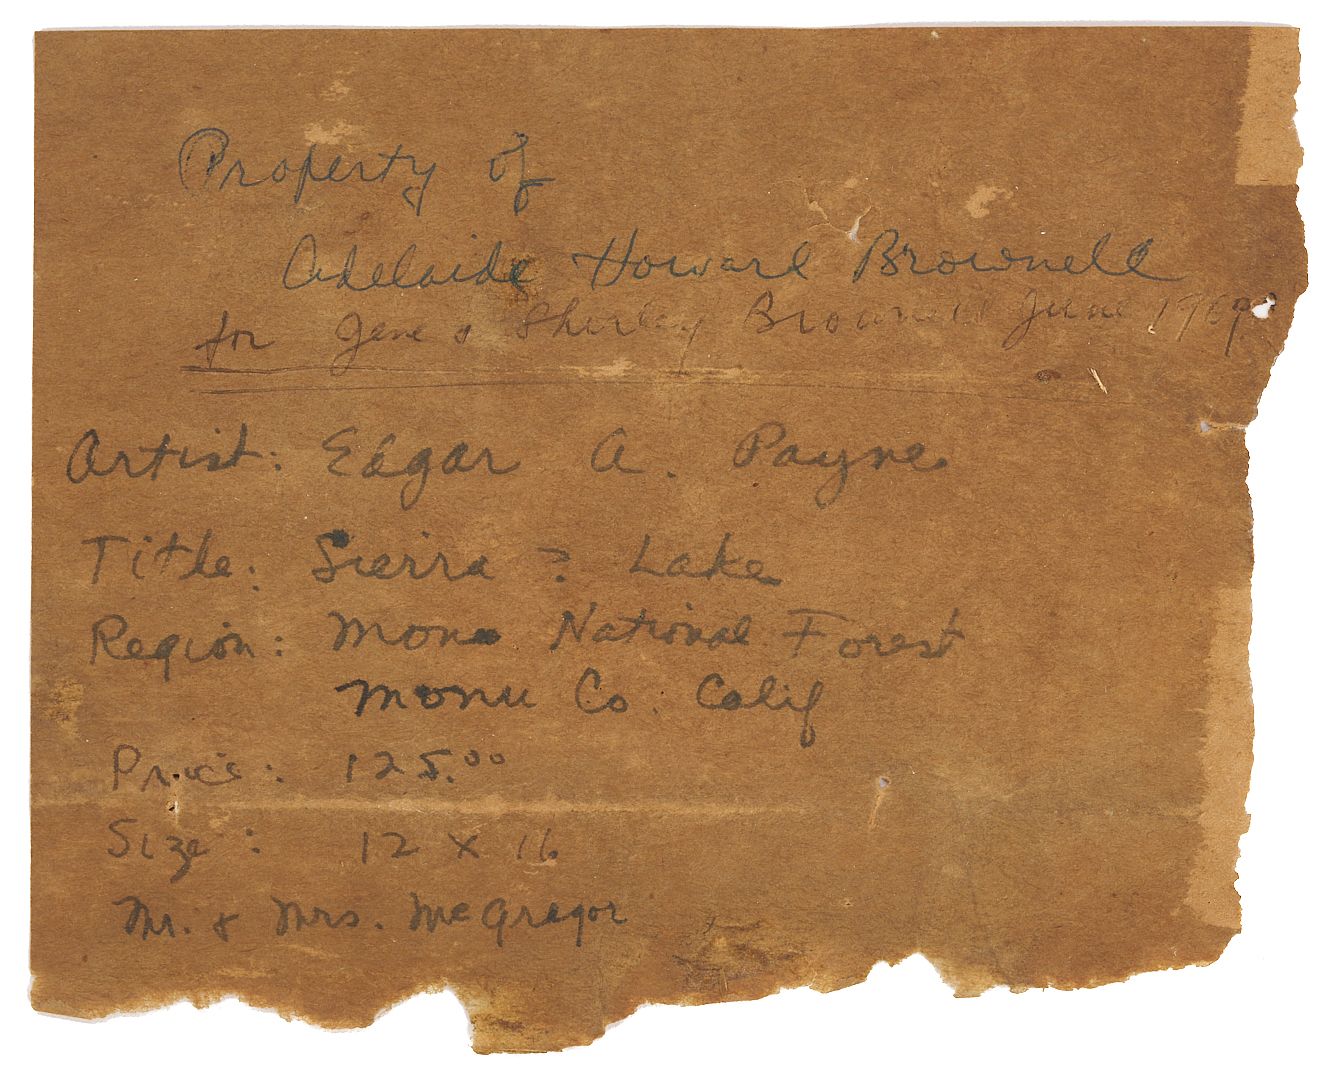 Property of
Adelaide Howard Brownell
for Gene & Shirley Brownell June 1969
Artist: Edgar A. Payne
Title: Sierra ? Lake
Region: Mono National Forest
Monu Co. Calif
Price: 125.00
Size: 12 x 16
Mr. & Mrs. McGregor